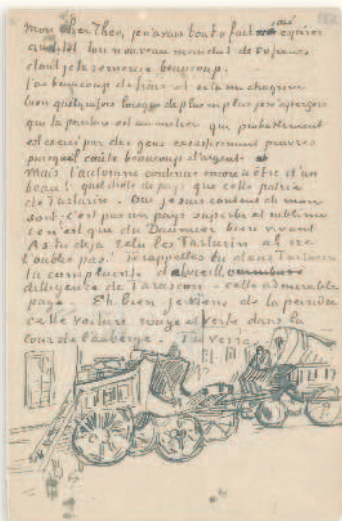 mon cher Theo, je n'avais tout à fait osé espérer
aussitôt ton nouveau mandat de 50 francs
dont je te remercie beaucoup.
J'ai beaucoup de frais et cela me chagrine
bien quelquefois lorsque de plus en plus je m'aperçois
que la peinture est un metier qui probablement
est exercé par des gens excessivement pauvres
puisqu'il coute beaucoup d'argent
Mais l'automne continue encore à être d'un
beau! quel drole de pays que cette patrie
de Tartarin. Oui je suis content de mon
sort. c'est pas un pays superbe et sublime
ce n'est que du Daumier bien vivant
As tu déja relu les Tartarin ah ne
l'oublie pas! Te rappelles tu dans Tartarin
la complainte de la vieille
diligence de Tarascon - cette admirable
page. Eh bien je viens de la peindre
cette voiture rouge et verte dans la
cour de l'auberge. Tu verras